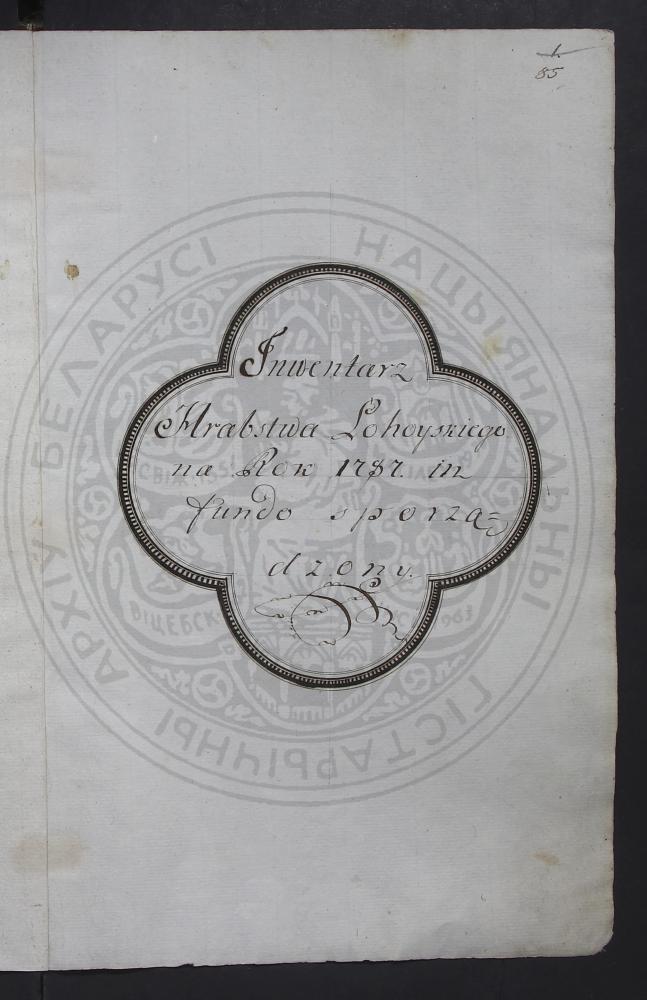 1.
85
Inwentarz
Hrabstwa Lohoyskiego
na Rok 1787. in
fundo sporzą=
dzony.
НАЦЫЯНАЛЬНЫ ГІСТАРЫЧНЫ АРХІЎ БЕЛАРУСІ